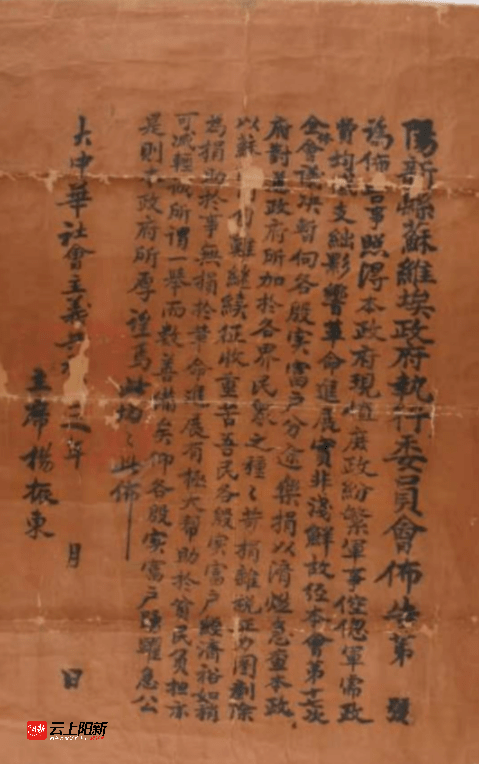 陽新縣蘇維埃政府執行委員會佈告第 號
為佈告事照得本政府現值庶政紛繁軍事倥偬軍需政
費均感支絀影響革命進展實非淺鮮故經本會第十七次
全會議决暫向各殷實富戶分途樂捐以濟燃急查本政
府對舊政府所加於各界民眾之種々苛捐雜稅正力圖剷除
以蘇 仍難繼續征收重苦吾民各殷實富戶經濟裕如捐
為捐助於事無損於革命進展有極大幫助於貧民負担亦
可減輕誠所謂一舉而數善備矣仰各殷實富戶踴躍急公
是則本政府所厚望焉 此佈
大中華社會主義 三年 月 日
主席楊振東
云上阳新